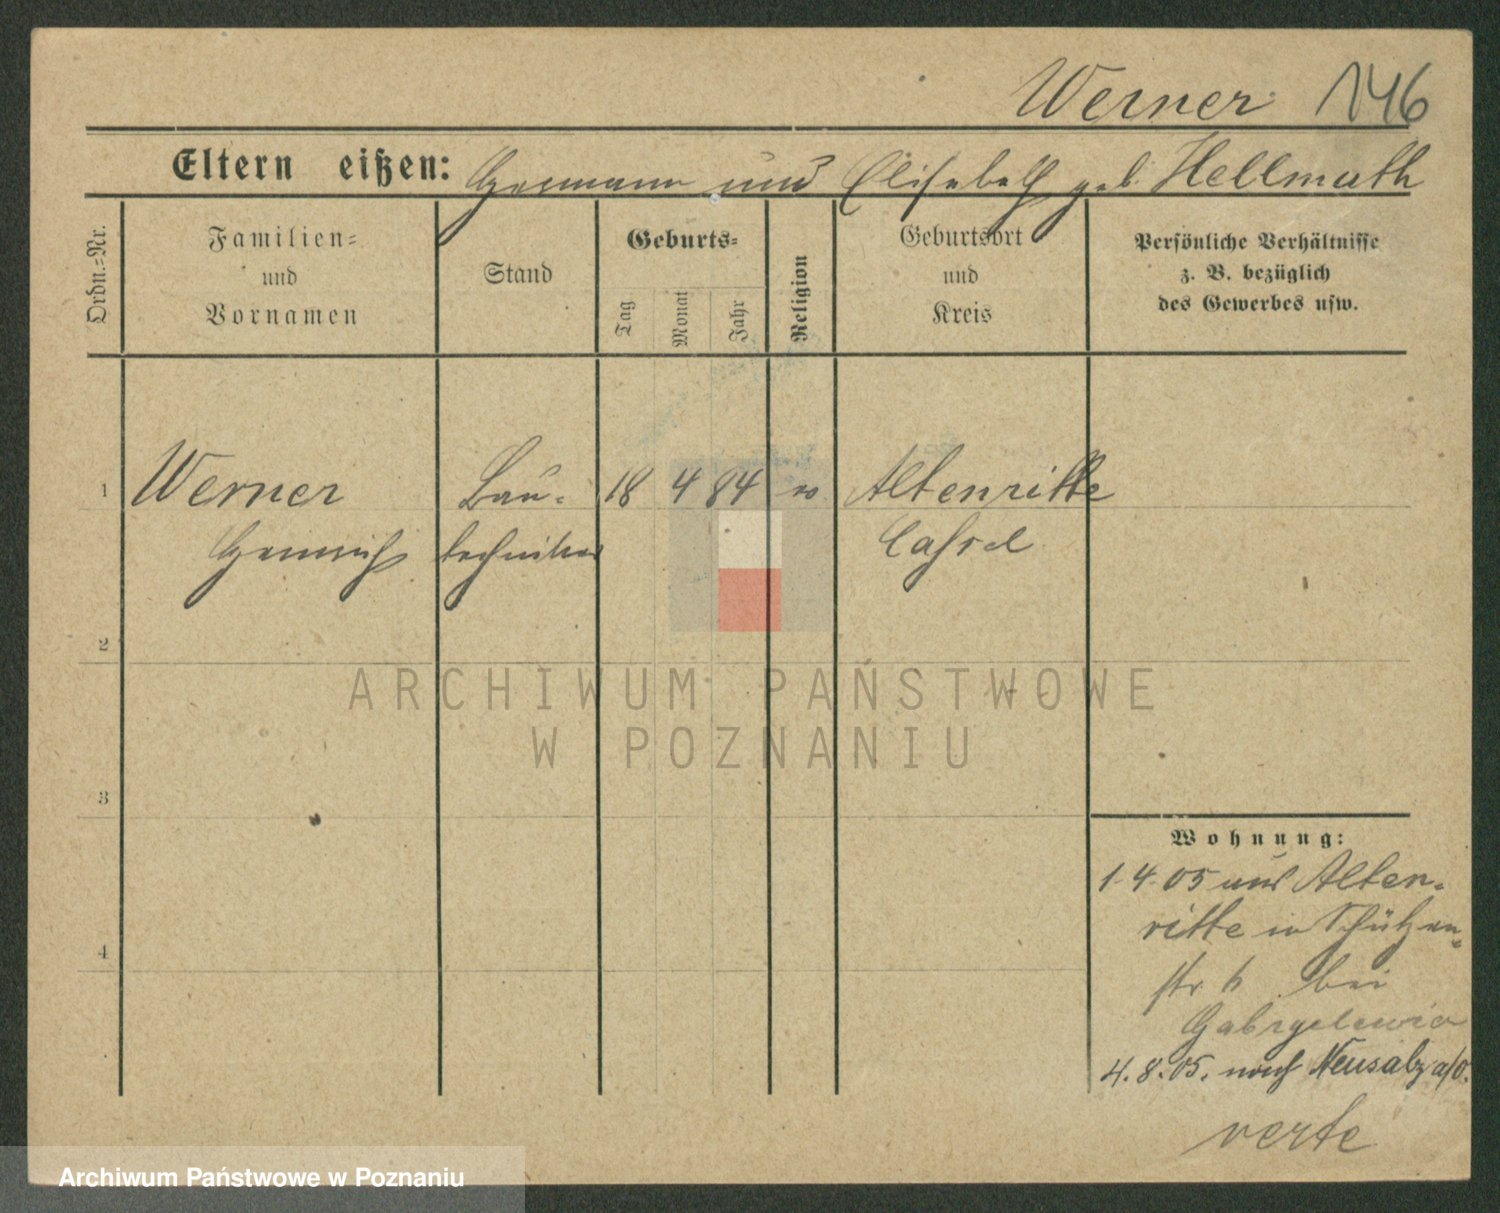 Werner 146
Eltern eißen: Hermann und Elisabeth geb. Hellmuth
Ordn.-Nr.
Familien-
und
Vornamen
Stand
Geburts-
Tag
Monat
Jahr
Religion
Geburtsort
und
Kreis
Persönliche Verhältnisse
z. B. bezüglich
des Gewerbes usw.
1 Werner Bau- 18 4 84 Altenritte
Heinrich techniker Cassel
2
3
4
Wohnung:
1.4.05 aus Alten-
ritte in Schützen-
str. 6 bei
4.8.05. nach Neusalz a/O.
verte
ARCHIWUM PAŃSTWOWE
W POZNANIU
Archiwum Państwowe w Poznaniu